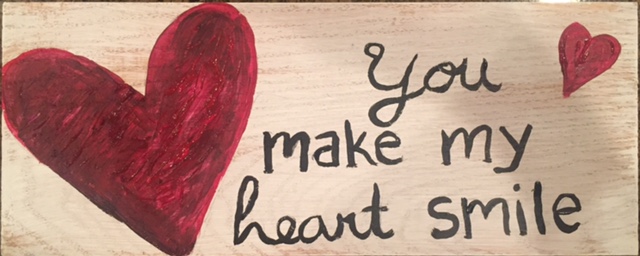 You
make my
heart smile